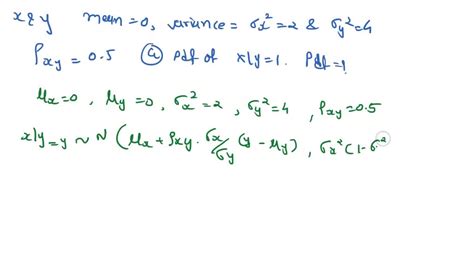 x & y mean=0, variance = σx²=2 & σy²=4
ρxy = 0.5 (a) pdf of x|y=1. Pdf=1
μx=0, μy=0, σx²=2, σy²=4, ρxy=0.5
x|y=y ~ N (μx + ρxy · σx/σy (y - μy), σx² (1-σ²